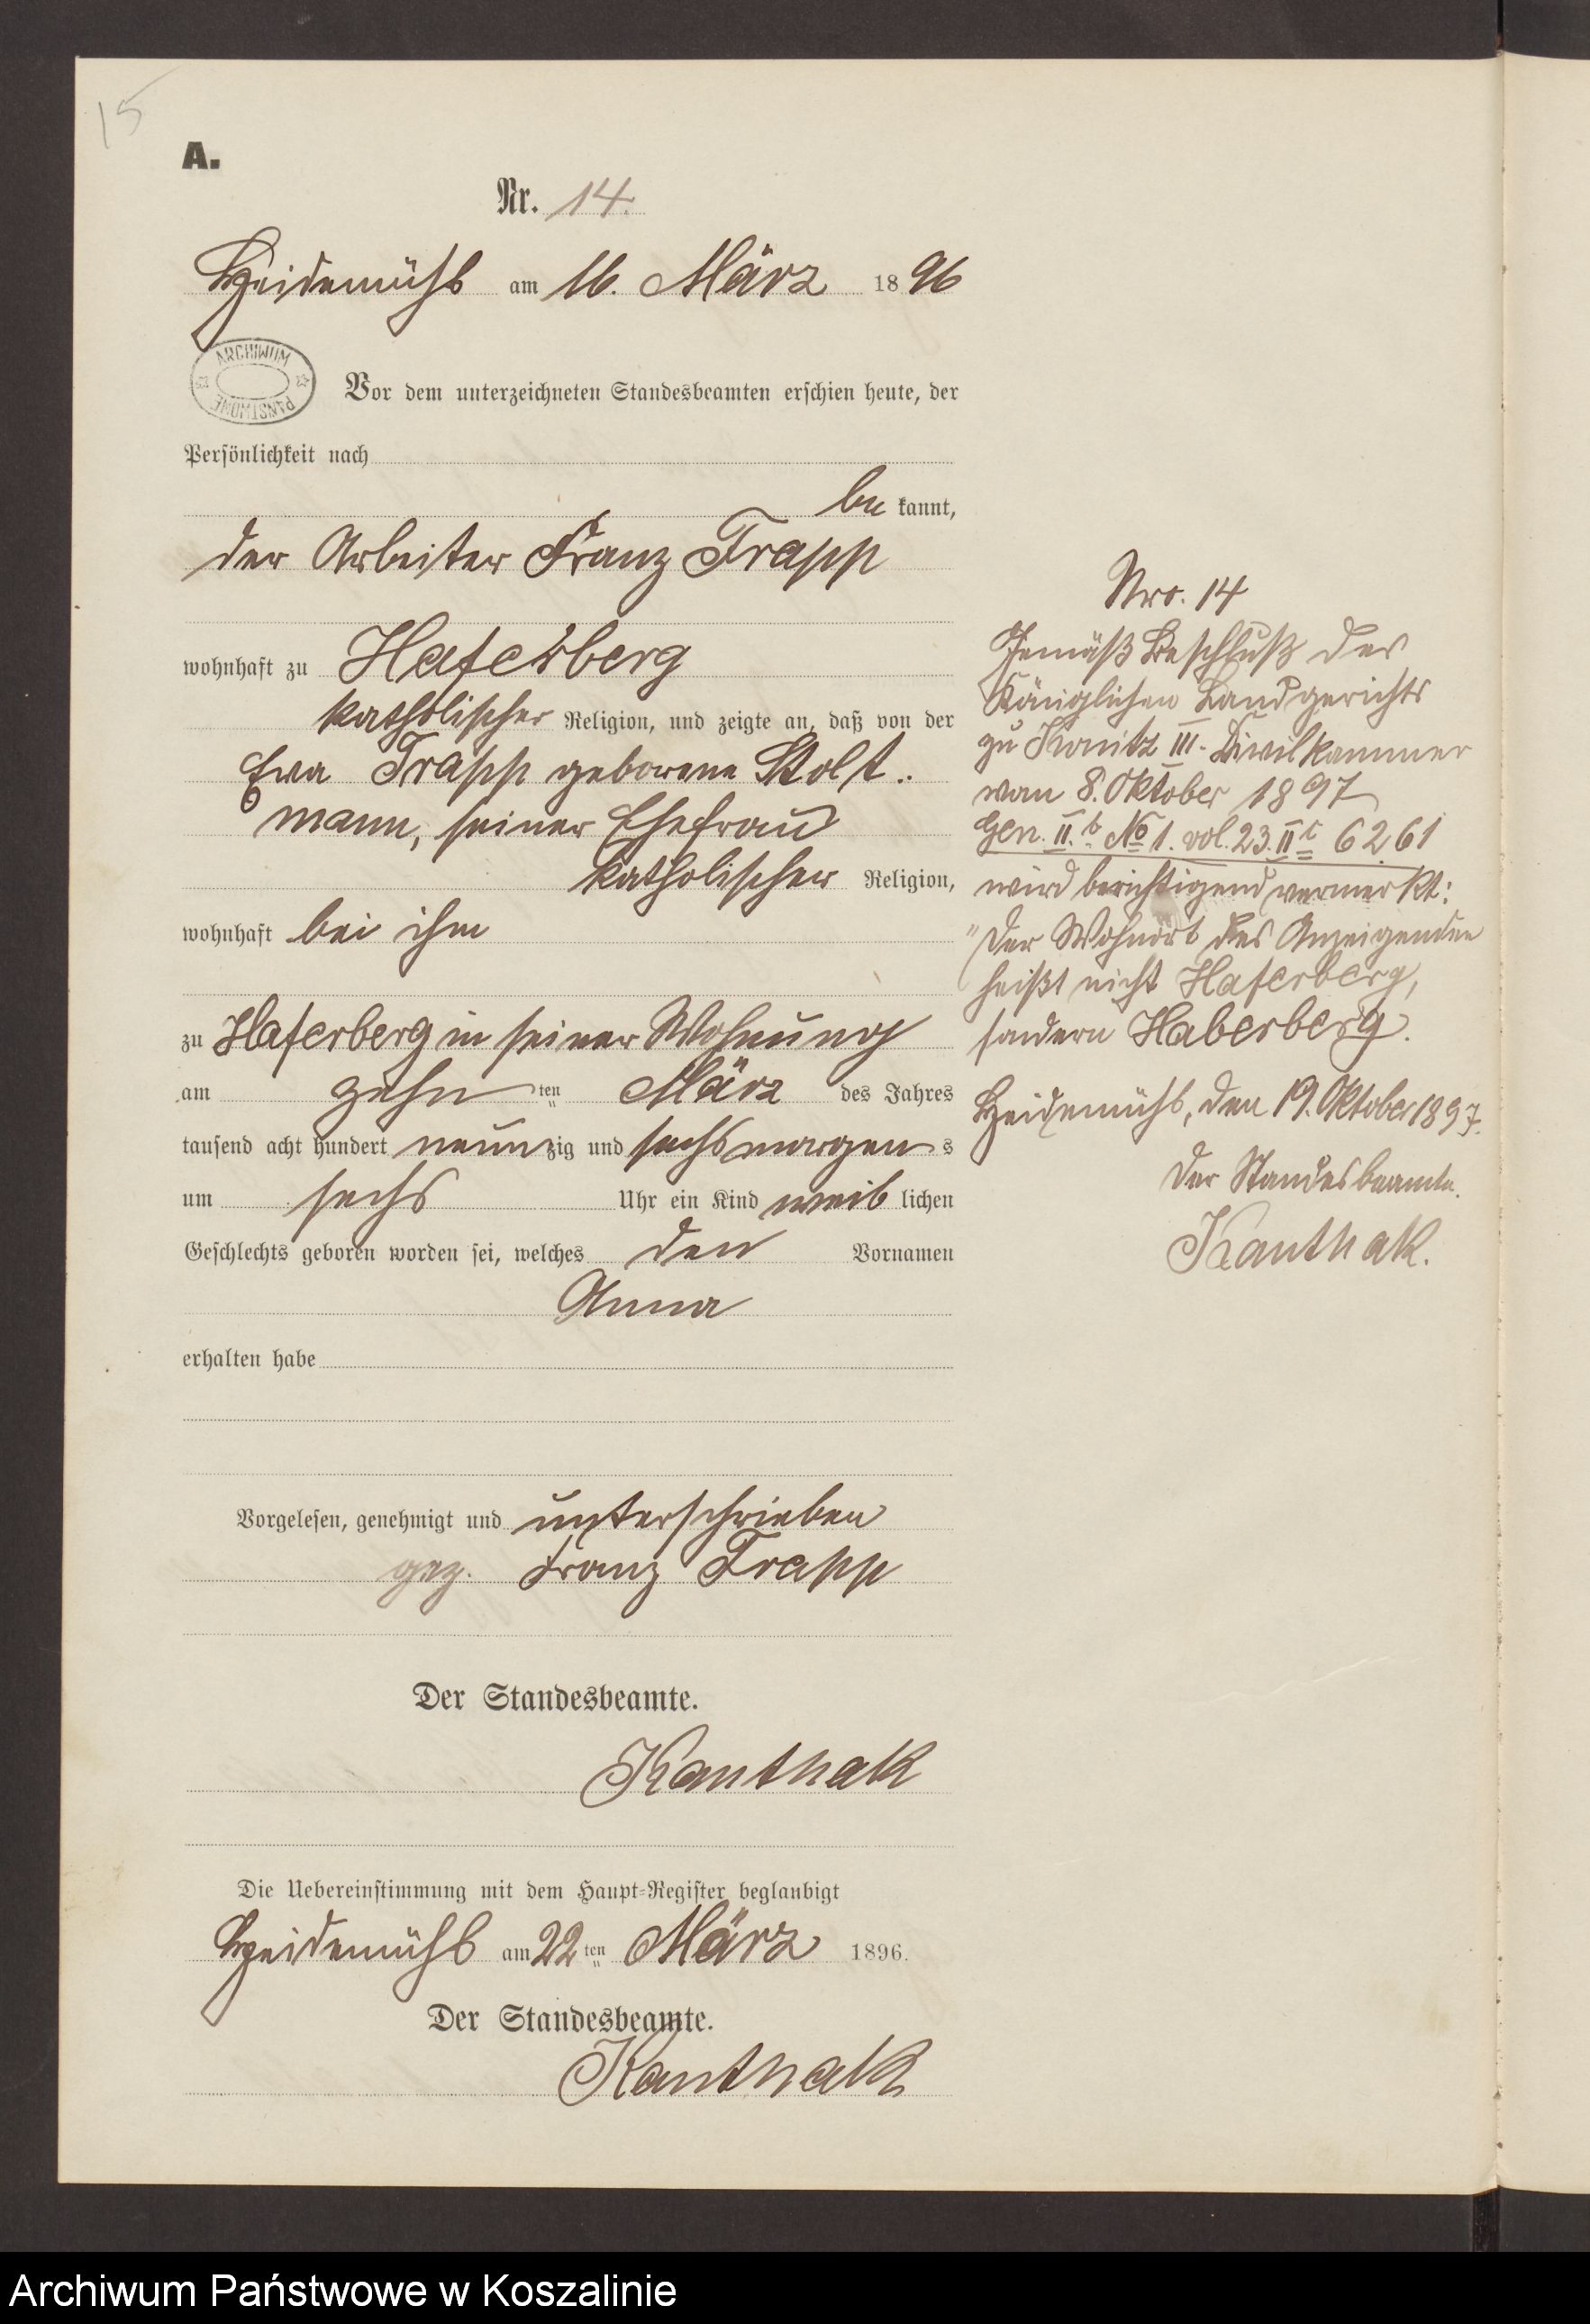 15
A.
Nr. 14.
Heidemühl am 16. März 1896
ARCHIWUM
PAŃSTWOWE
Vor dem unterzeichneten Standesbeamten erschien heute, der
Persönlichkeit nach
be kannt,
der Arbeiter Franz Trapp
wohnhaft zu Haferberg
katholischer Religion, und zeigte an, daß von der
Eva Trapp geborene Stolt-
mann, seiner Ehefrau
katholischer Religion,
wohnhaft bei ihm
zu Haferberg in seiner Wohnung
am zehn ten März des Jahres
tausend acht hundert neunzig und sechs morgens
um sechs Uhr ein Kind weiblichen
Geschlechts geboren worden sei, welches den Vornamen
Anna
erhalten habe
Vorgelesen, genehmigt und unterschrieben
gez. Franz Trapp
Der Standesbeamte.
Kanthak
Die Uebereinstimmung mit dem Haupt-Register beglaubigt
Heidemühl am 22ten März 1896.
Der Standesbeamte.
Kanthak
Nro. 14
Gemäß Beschluß des
Königlichen Landgerichts
zu Konitz III. Civilkammer
vom 8. Oktober 1897
Gen. II. b No 1. vol. 23. II c 6261
wird berichtigend vermerkt:
"Der Wohnort des Anzeigenden
heißt nicht Haferberg,
sondern Haberberg.
Heidemühl, den 19. Oktober 1897.
Der Standesbeamte.
Kanthak.
Archiwum Państwowe w Koszalinie